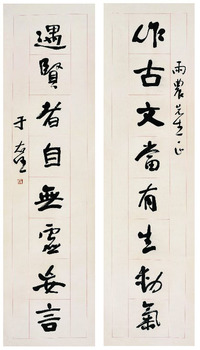 雨農先生正
作古文當有生動氣
遇賢者自無虛妄言
于右任